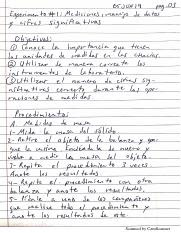 pag. 03
Experimento #1: Mediciones, manejo de datos
y cifras significativas
Objetivos:
① Conocer la importancia que tienen
las unidades de medidas en las ciencias.
② Utilizar de manera correcta los
instrumentos de laboratorio.
③ Utilizar el número de cifras sig-
nificativas correcto durante las ope-
raciones de medidas
Procedimientos
A Medidas de masa
1- Mida la masa del sólido.
2- Retire el objeto de la balanza y ope-
que la misma, enciéndala de nuevo y
vuelva a medir la masa del objeto
3- Repita el procedimiento 3 veces.
Anote los resultados
4- Repita el procedimiento con otra
balanza y anote los resultados.
5- Pídale a uno de los compañeros
que realice todo el procedimiento y
anote los resultados de este
Scanned by CamScanner